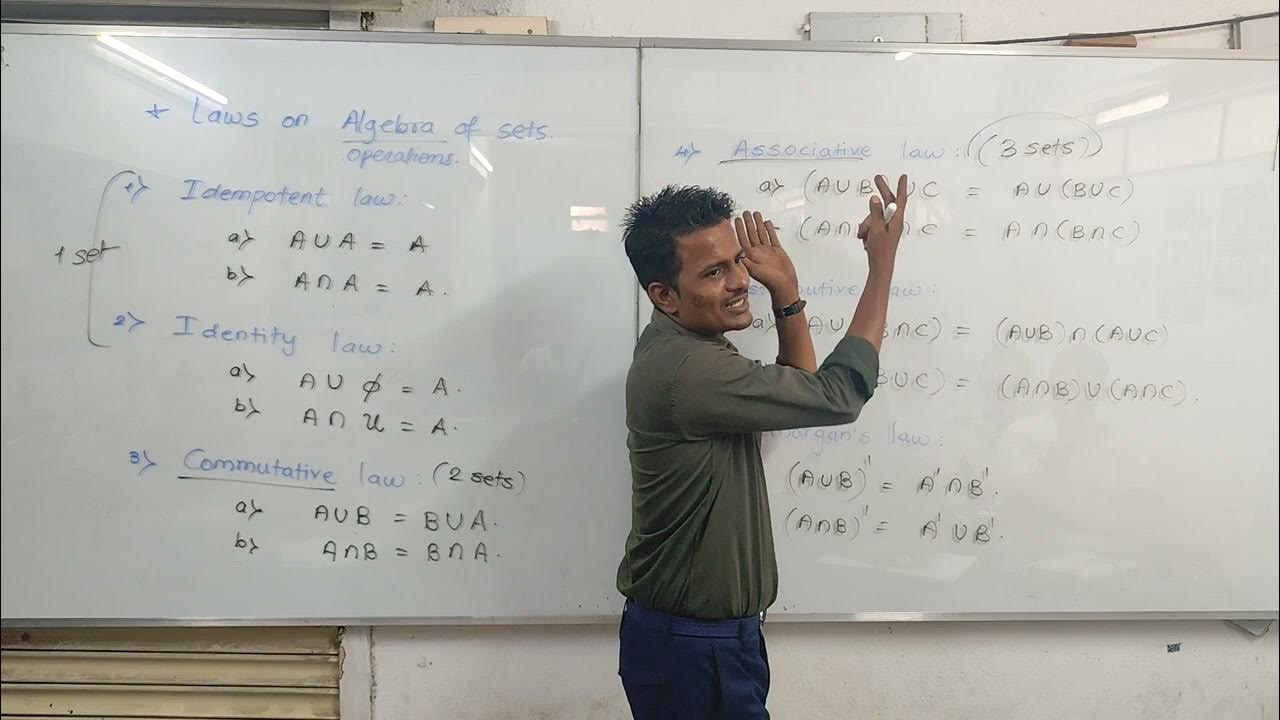 * Laws on Algebra of sets.
operations.
1 set
1) Idempotent law:
a) A∪A = A
b) A∩A = A.
2) Identity law:
a) A∪ϕ = A.
b) A∩U = A.
3) Commutative law: (2 sets)
a) A∪B = B∪A.
b) A∩B = B∩A.
4) Associative law: (3 sets)
a) (A∪B)∪C = A∪(B∪C)
(A∩ ∩C = A∩(B∩C)
law:
a) A∪ B∩C) = (A∪B)∩(A∪C)
B∪C) = (A∩B)∪(A∩C).
law:
(A∪B)' = A'∩B'.
(A∩B)' = A'∪B'.